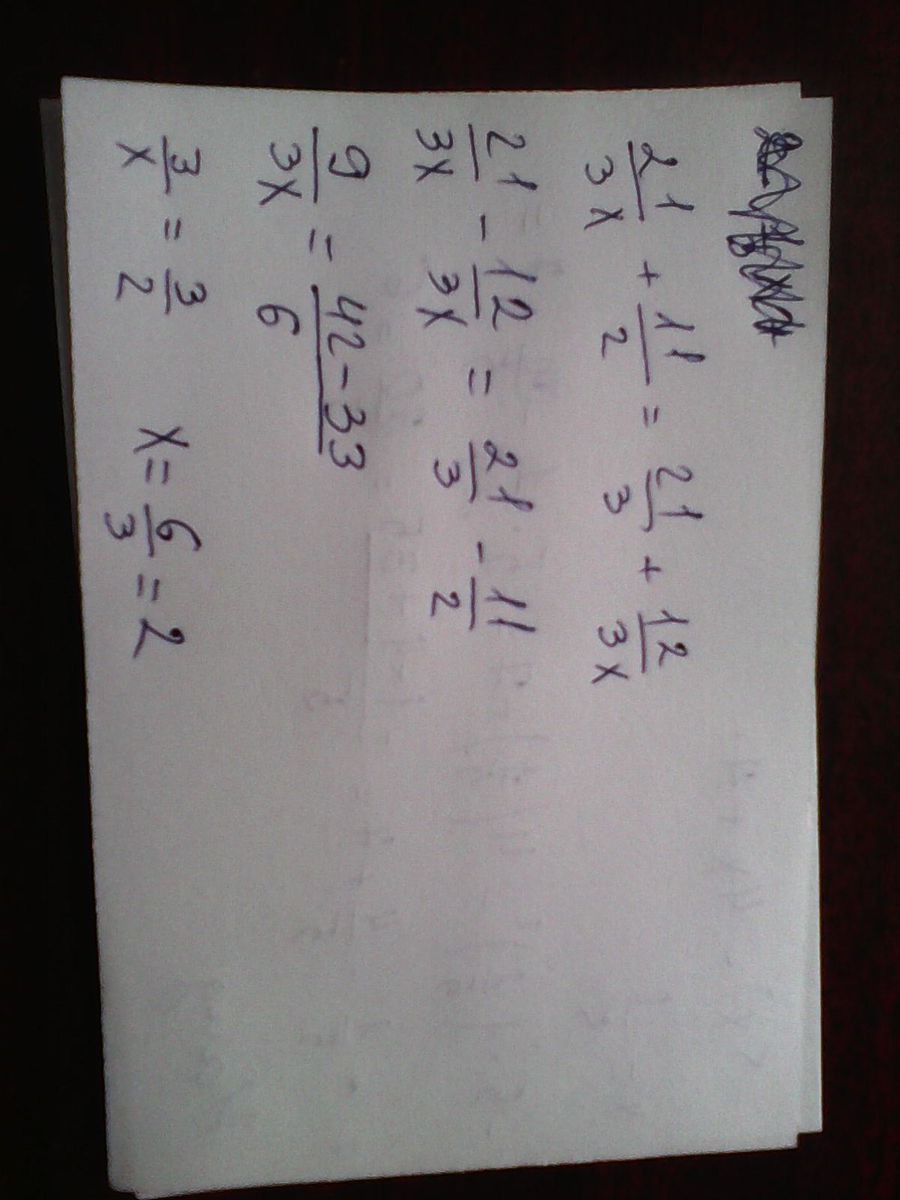 21/3x + 11/2 = 21/3 + 12/3x
21/3x - 12/3x = 21/3 - 11/2
9/3x = 42-33/6
3/x = 3/2 x = 6/3 = 2